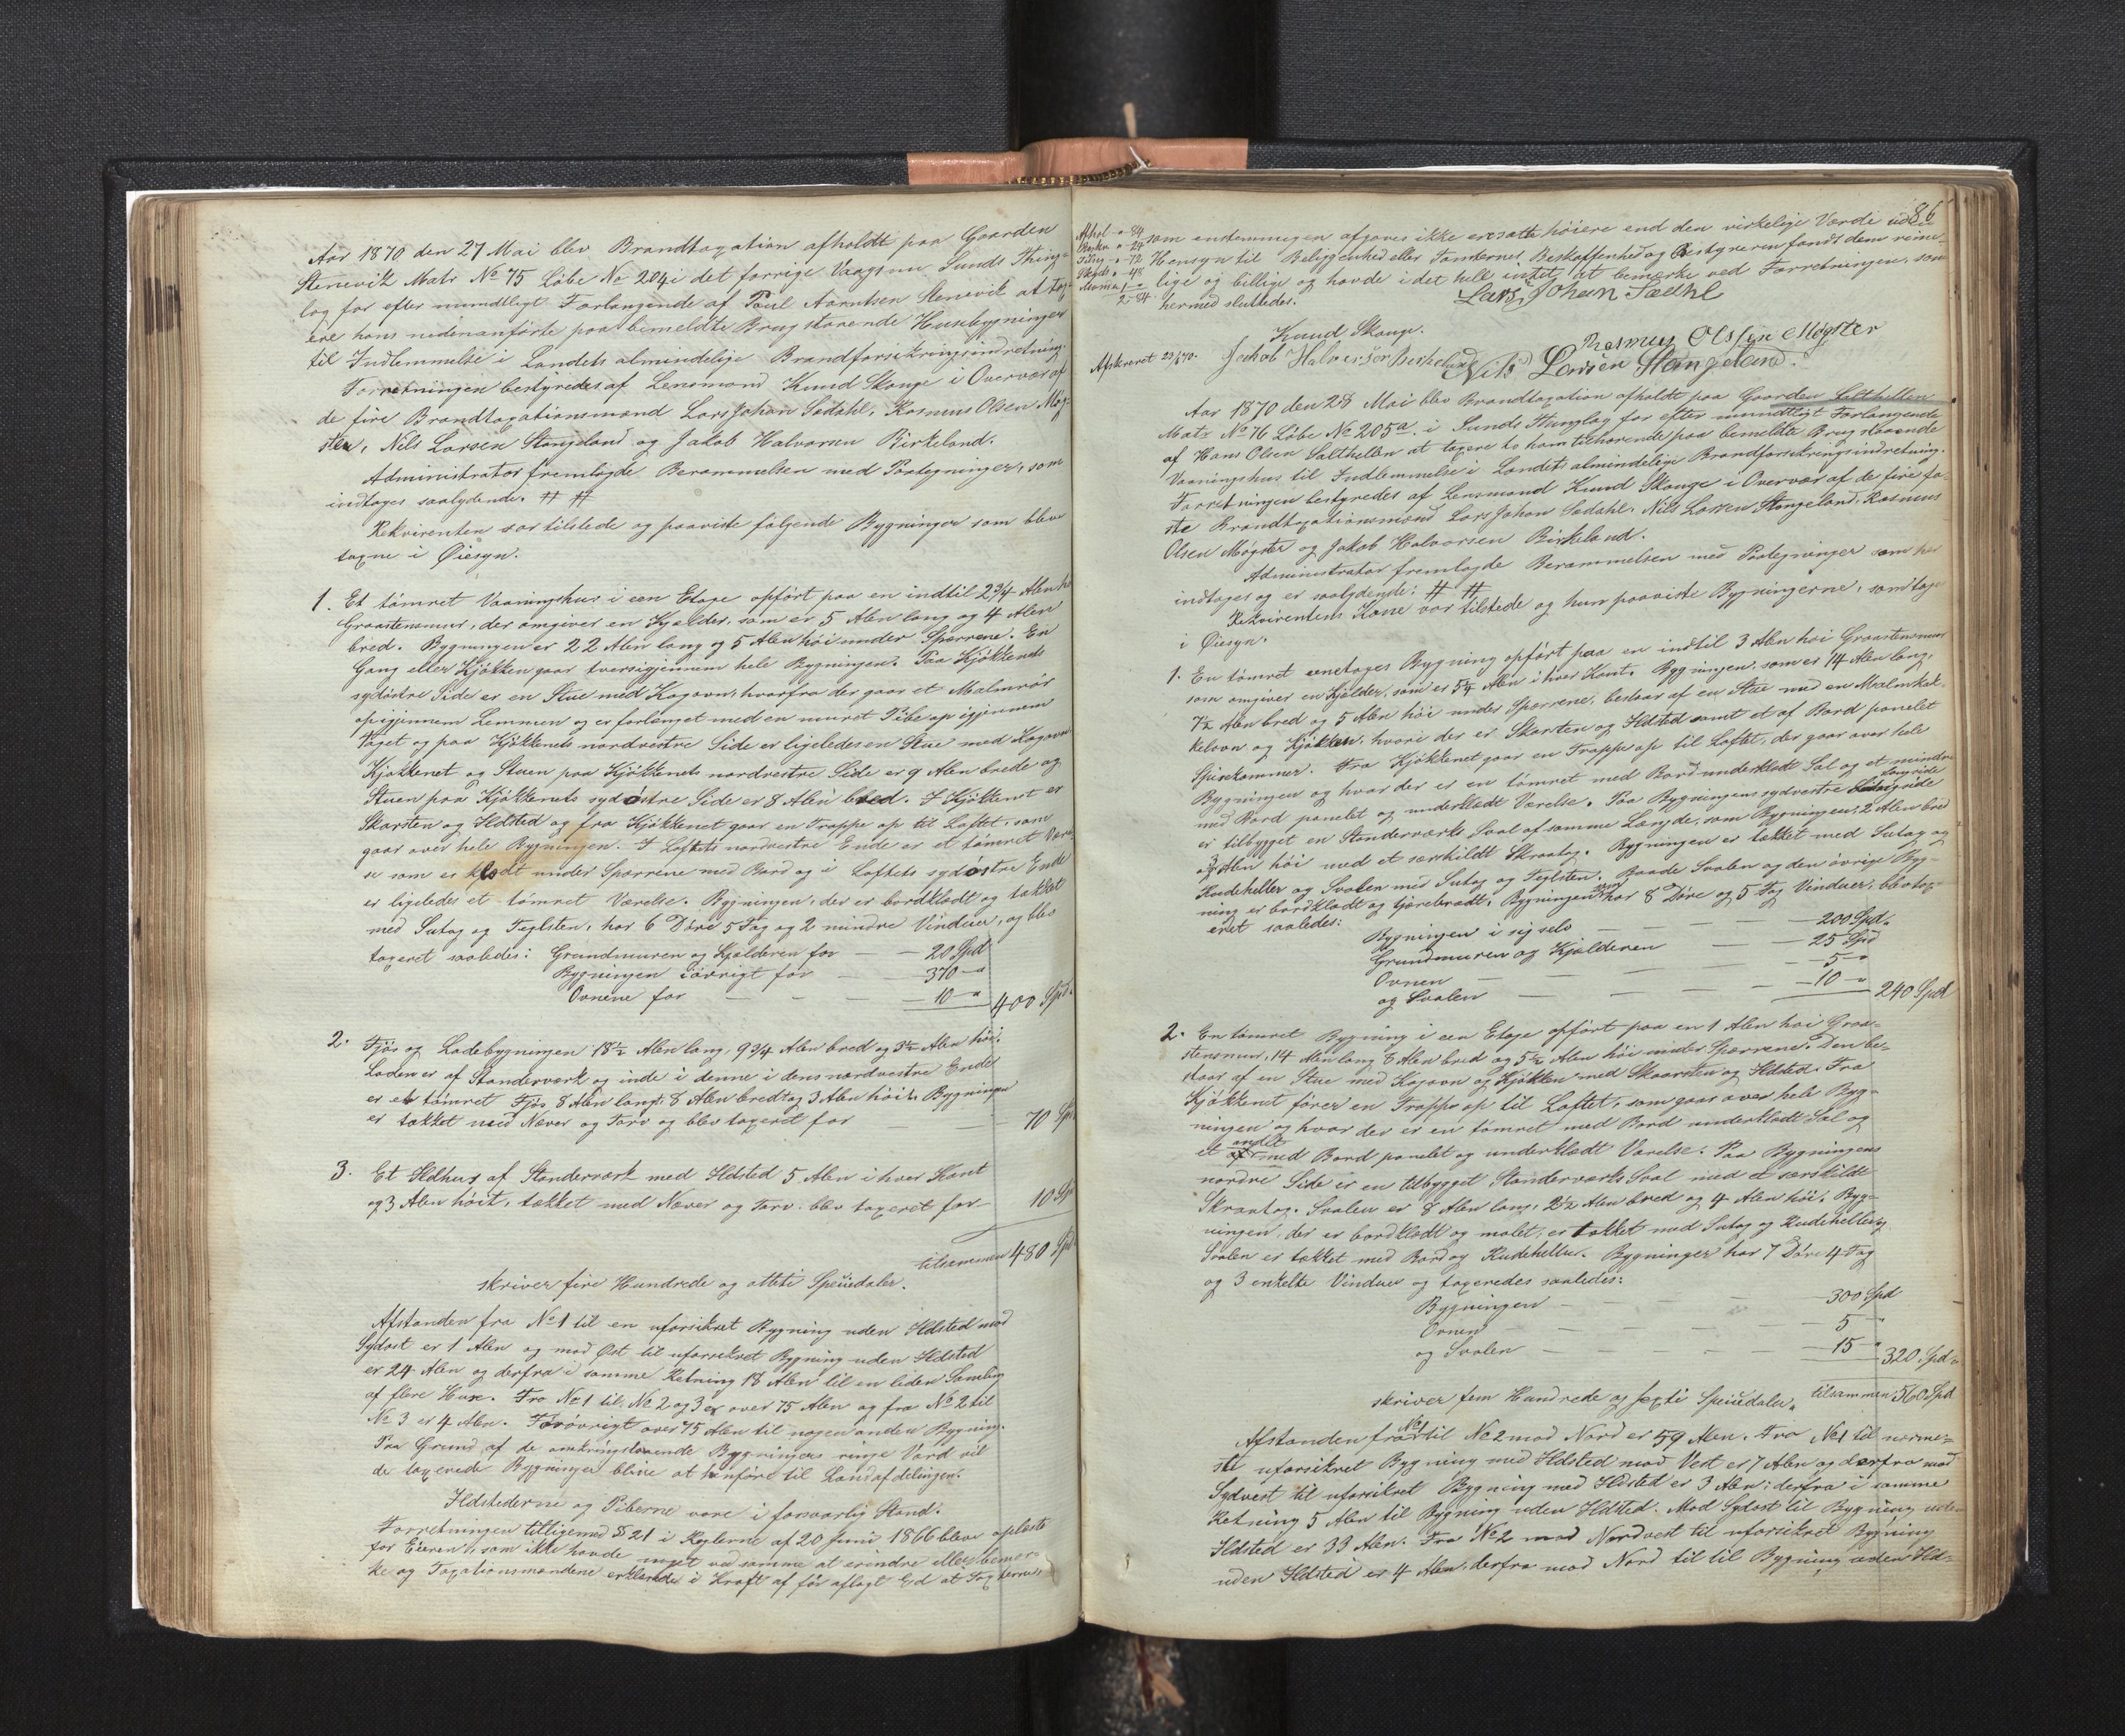 Aar 1870 den 27 Mai blev Brandtaxation afholdt paa Gaarden
Stenevik Matr No 75 Löbe No 204 i det forrige Vaags nu Sunds Thing-
lag for efter mundtligt Forlangende af Poul Aarntsen Stenevik at tax-
ere hans nedenanførte paa bemeldte Brug staaende Husebygninger
til Indlemmelse i Landets almindelige Brandforsikringsindretning.
Forretningen bestyredes af Lensmand Knud Skauge i Overvær af
de fire Brandtaxationsmænd Lars Johan Sædahl, Rasmus Olsen Møg-
ster, Nils Larsen Stangeland og Jakob Halvorsen Birkeland.
Administrator fremlagde Berammelsen med Paategninger, som
indtages saalydende. # #
Rekvirenten var tilstede og paaviste følgende Bygninger som blev
tagne i Øiesyn.
1. Et tömret Vaaningshus i een Etage opfört paa en indtil 2 3/4 Alen
Graastensmur, der omgiver en Kjælder, som er 5 Alen lang og 4 Alen
bred. Bygningen er 22 Alen lang og 5 Alen höi under Sparrene. En
Gang eller Kjökken gaar tversigjennem hele Bygningen. Paa Kjökkenets
sydöstre Side er en Stue med Kogovn, hvorfra der gaar et Malmrör
op igjennem Lemmen og er forlænget med en muret Pibe op igjennem
Taget og paa Kjökkenets nordvestre Side er ligeledes en Stue med Kogovn
Kjökkenet og Stuen paa Kjökkenets nordvestre Side er 9 Alen brede og
Stuen paa Kjökkenets sydöstre Side er 8 Alen bred. I Kjökkenet er
Skorsten og Ildsted og fra Kjökkenet gaar en Trappe op til Loftet, som
gaar over hele Bygningen. I Loftets nordvestre Ende er et tömret Værel-
se som er klædt under Sparrene med Bord og i Loftets sydöstre Ende
er ligeledes et tömret Værelse. Bygningen, der er bordklædt og tækket
med Sutag og Teglsten, har 6 Döre 5 Fag og 2 mindre Vinduer, og blev
taxeret saaledes: Grundmuren og Kjælderen for — — 20 Spd
Bygningen iövrigt for — — 370 — "
Ovnene for — — — — 10 — " 400 Spd.
2. Fjös og Ladebygningen 18 1/2 Alen lang, 9 3/4 Alen bred og 3 1/2 Alen höi.
Laden er af Standerværk og inde i denne i dens nordvestre Ende
er et tömret Fjös 8 Alen langt 8 Alen bredt og 3 Alen höit. Bygningen
er tækket med Næver og Torv og blev taxeret for — — — 70 Spd
3. Et Ildhus af Standerværk med Ildsted 5 Alen i hver Kant
og 3 Alen höit, tækket med Næver og Torv blev taxeret for — 10 Spd
tilsammen 480 Spd
skriver fire Hundrede og otteti Speciedaler.
Afstanden fra No 1 til en uforsikret Bygning uden Ildsted mod
Sydost er 1 Alen og mod Øst til uforsikret Bygning uden Ildsted
er 24 Alen og derfra i samme Retning 18 Alen til en liden Samling
af flere Huse. Fra No 1 til No 2 og 3 er over 75 Alen og fra No 2 til
No 3 er 4 Alen. Forøvrigt over 75 Alen til nogen anden Bygning.
Paa Grund af de omkringstaaende Bygningers ringe Værd vil
de taxerede Bygninger blive at henföre til Landafdelingen.
Ildstederne og Piberne vare i forsvarlig Stand.
Forretningen tilligemed § 21 i Reglerne af 20 Juni 1866 blev oplæste
for Eieren, som ikke havde noget ved samme at erindre eller bemær-
ke og Taxationsmændene erklærede i Kraft af för aflagt Ed at Taxterne,
86
Afhol - " 84
" - 24
Tillæg - " - 72
Skyds - " - 48
2 - 84
som enstemmigen afgaves ikke ere satte höiere end den virkelige Værdi ud
Hensyn til Beliggenhed eller Tomternes Beskaffenhed og Bestyreren fandt dem rime-
lige og billige og havde i det hele intet at bemærke ved Forretningen, som
hermed sluttedes.
Lars Johan Sædhl
Knud Skauge.
Rasmus Olssen Møgster
Afskrevet 23/6 70. Jackob Halversen Birkeland Nils Larsen Stangeland.
Aar 1870 den 28 Mai blev Brandtaxation afholdt paa Gaarden Salthellen
Matr No 76 Löbe No 205a i Sunds Thinglag for efter mundtligt Forlangende
af Hans Olsen Salthellen at taxere to ham tilhørende paa bemeldte Brug staaende
Vaaningshus til Indlemmelse i Landets almindelige Brandforsikringsindretning.
Forretningen bestyredes af Lensmand Knud Skauge i Overvær af de fire fa-
ste Brandtaxationsmænd Lars Johan Sædahl, Nils Larsen Stangeland, Rasmus
Olsen Møgster og Jakob Halvorsen Birkeland.
Administrator fremlagde Berammelsen med Paategninger som her
indtages og er saalydende: # #
Rekvirentens Kone var tilstede og hun paaviste Bygningerne, som toges
i Øiesyn.
1. En tömret eenetages Bygning opfört paa en indtil 3 Alen höi Graastensmur
som omgiver en Kjælder, som er 5 1/2 Alen i hver Kant. Bygningen, som er 14 Alen lang,
7 1/2 Alen bred og 5 Alen höi under Sparrene, bestaar af en Stue med en Malmkak-
kelovn og Kjökken, hvori der er Skorsten og Ildsted samt et af Bord panelet
Spisekammer. Fra Kjökkenet gaar en Trappe op til Loftet, der gaar over hele
Bygningen og hvor der er en tömret med Bord underklædt Sal og et mindre
med Bord panelet og underklædt Værelse. Paa Bygningens sydvestre Langside
er tilbygget en Standerværks Sval af samme Længde, som Bygningen, 2 Alen bred
og 3 Alen höi med et særskildt Skraatag. Bygningen er tækket med Sutag og
Rudeheller og Svalen med Sutag og Teglsten. Baade Svalen og den övrige Byg-
ning er bordklædt og tjærebrædt. Bygningen som har 8 Döre og 5 Fag Vinduer, blev tax-
eret saaledes:
Bygningen i sig selv — — — — 200 Spd.
Grundmuren og Kjælderen — — 25 Spd
Ovnen — — — — 5 — "
og Svalen — — — — 10 — " 240 Spd
2. En tömret Bygning i een Etage opfört paa en 1 Alen höi Graa-
stensmur, 14 Alen lang 8 Alen bred og 5 1/2 Alen höi under Sparrene. Den be-
staar af en Stue med Kogovn og Kjökken med Skorsten og Ildsted. Fra
Kjökkenet förer en Trappe op til Loftet, som gaar over hele Byg-
ningen og hvor der er en tömret med Bord underklædt Sal og
et andet med Bord panelet og underklædt Værelse. Paa Bygningens
nordre Side er en tilbygget Standerværks Sval med et særskildt
Skraatag. Svalen er 8 Alen lang, 2 1/2 Alen bred og 4 Alen höi. Byg-
ningen, der er bordklædt og malet, er tækket med Sutag og Rudeheller og
Svalen er tækket med Bord og Rudeheller. Bygningen har 7 Döre 4 Fag
og 3 enkelte Vinduer og taxeredes saaledes:
Bygningen — — — — 300 Spd
Ovnen — — — — 5 — "
og Svalen — — — — 15 — " 320 Spd
skriver fem Hundrede og sexti Speciedaler. tilsammen 560 Spd
Afstanden fra No 1 til No 2 mod Nord er 59 Alen. Fra No 1 til nærme-
ste uforsikret Bygning med Ildsted mod Vest er 7 Alen og derfra mod
Sydvest til uforsikret Bygning med Ildsted er 3 Alen; derfra i samme
Retning 5 Alen til Bygning uden Ildsted. Mod Sydost til Bygning uden
Ildsted er 33 Alen. Fra No 2 mod Nordvest til uforsikret Bygning
uden Ildsted er 4 Alen, derfra mod Nord til til Bygning uden Ild-